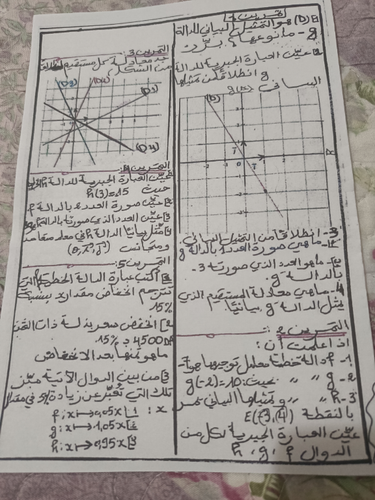 التمرين 1:
(D) هو التمثيل البياني للدالة g
- ما نوعها؟ برّر.
2- عيّن العبارة الجبرية للدالة g انطلاقا من تمثيلها
البياني
g(x)
(D)
x
3- انطلاقا من التمثيل البياني
1- ما هي صورة العدد بالدالة g
2- ما هو العدد الذي صورته 3-
بالدالة g
4- ما هي معادلة المستقيم الذي
يمثل الدالة g بيانيا
التمرين 2:
إذا علمت أن:
1- f دالة خطية معامل توجيهها هو
2- g " " بحيث: g(-2)=10
3- h " " وتمثيلها البياني يمر
بالنقطة E(-3,4)
عيّن العبارة الجبرية لكل من
الدوال h, g, f
التمرين 3:
جد معادلة كل مستقيم
من الشكل
(D3)
(D2)
(D1)
(D4)
التمرين 4:
عيّن العبارة الجبرية للدالة h
حيث h(3)=15
2- عيّن صورة العدد بالدالة
3- عيّن العدد الذي صورته بالدالة
مثل بيانيا الدالة h في معلم متعامد
ومتجانس
التمرين 5:
1 أكتب عبارة الدالة الخطية التي
تترجم انخفاض مقدار بنسبة
15%
2 انخفض سعر بدلة ذات الثمن
4500DA بـ 15%
ما هو ثمنها بعد الانخفاض
3 من بين الدوال الآتية ميّز
تلك التي تعبّر عن زيادة 5% في مقدار
x:
1 f: x → 0,05x
2 g: x → 1,05x
3 h: x → 0,95x